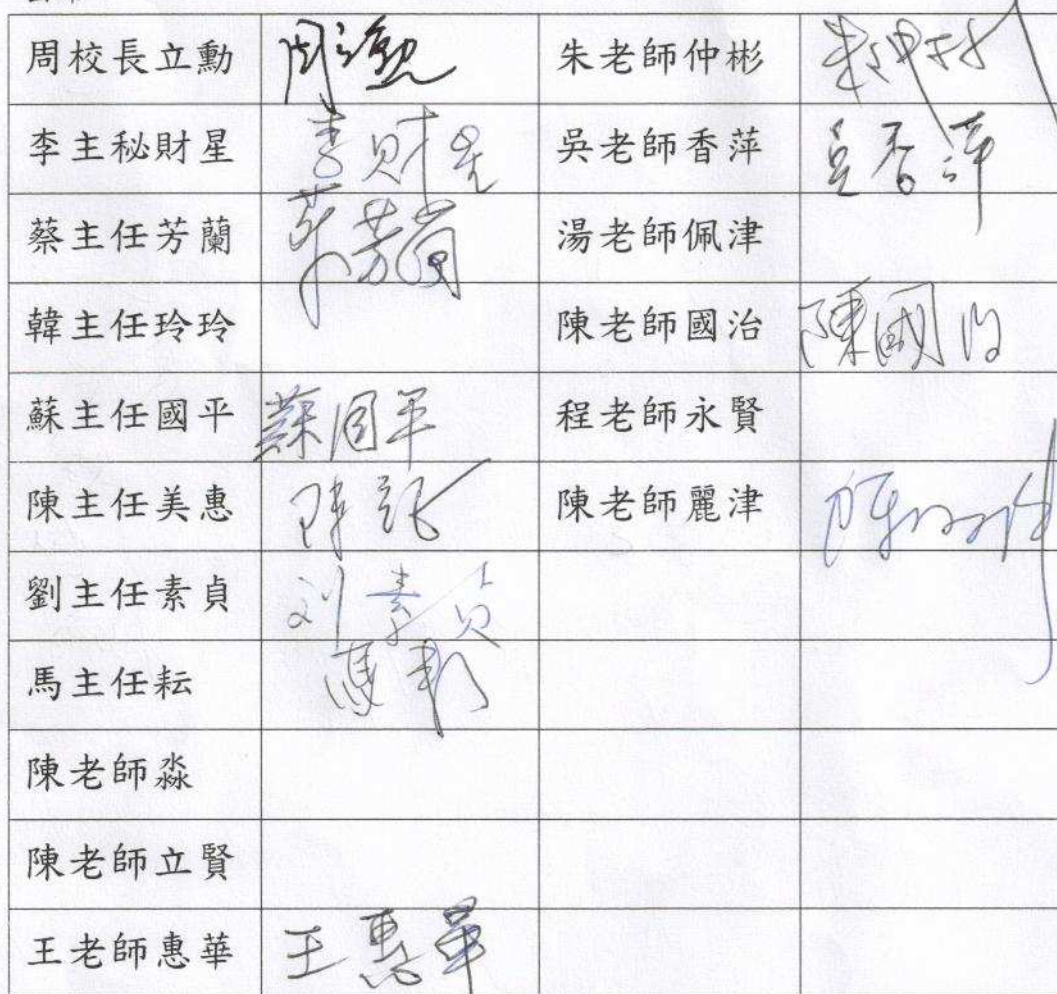 周校長立勳 周立勳 朱老師仲彬 朱仲彬
李主秘財星 李財星 吳老師香萍 吳香萍
蔡主任芳蘭 蔡芳蘭 湯老師佩津
韓主任玲玲 陳老師國治 陳國治
蘇主任國平 蘇國平 程老師永賢
陳主任美惠 陳老師麗津
劉主任素貞 刘素貞
馬主任耘 馬耘
陳老師淼
陳老師立賢
王老師惠華 王惠華